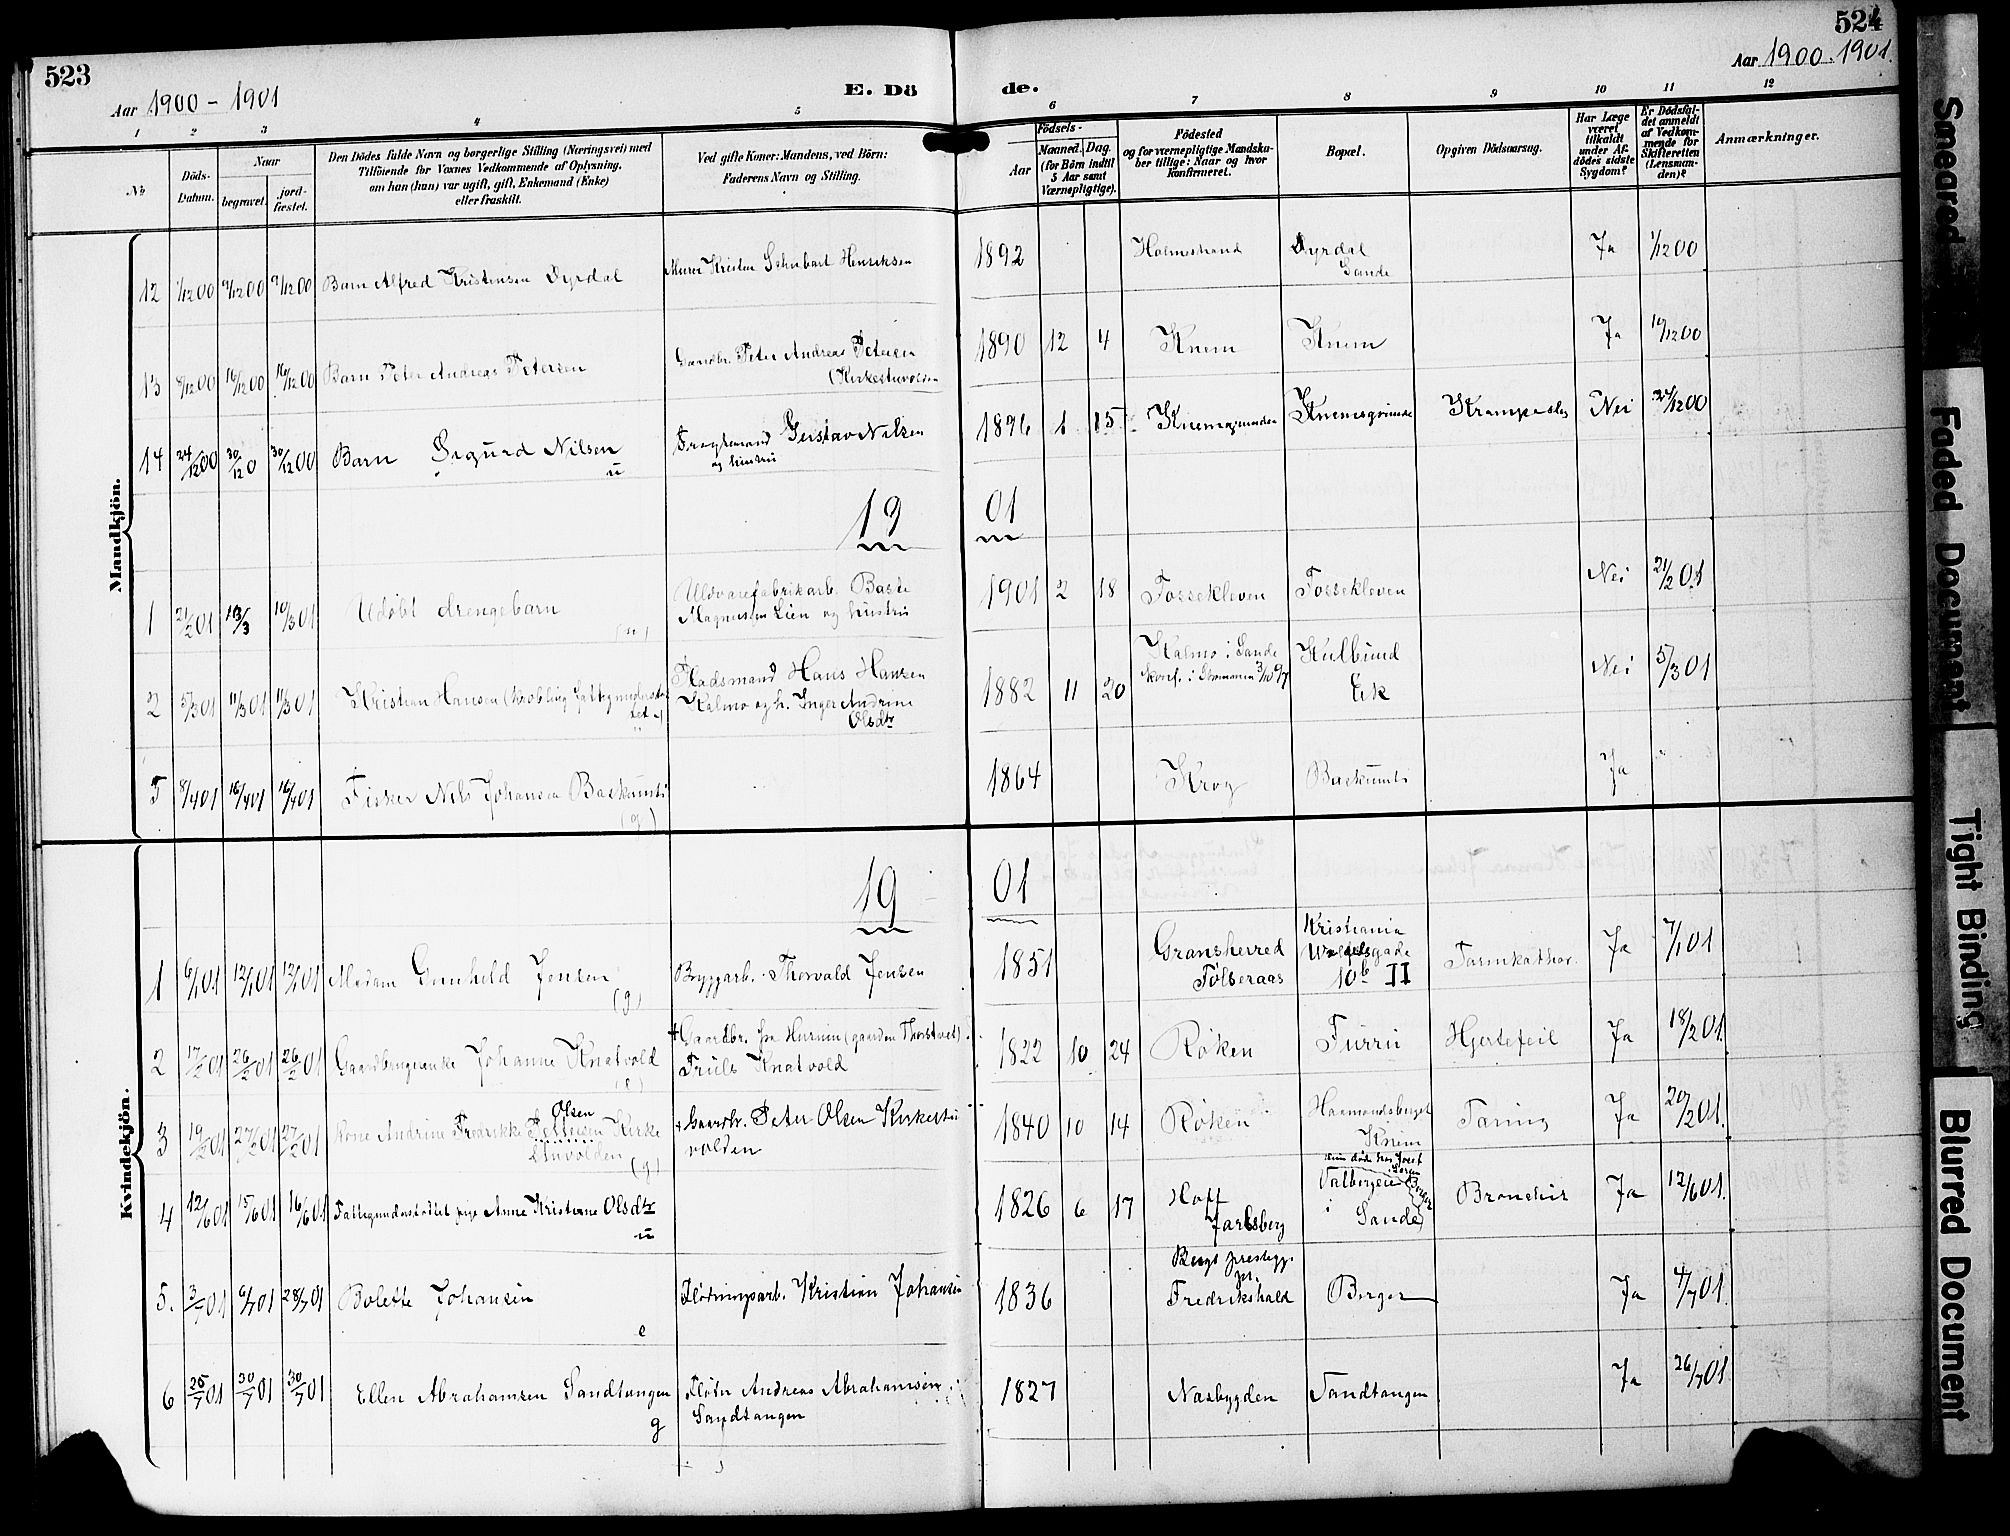 523
524
Aar 1900 - 1901
E. Dö
de.
Aar 1900. 1901.
1 2 3 4 5 6 7 8 9 10 11 12
No
Döds-Datum.
Naar
begravet.
jord-fæstet.
Den Dödes fulde Navn og borgerlige Stilling (Næringsvei) med
Tilföiende for Voxnes Vedkommende af Oplysning,
om han (hun) var ugift, gift, Enkemand (Enke)
eller fraskilt.
Ved gifte Koner: Mandens, ved Börn:
Faderens Navn og Stilling.
Födsels-
Aar
Maaned. Dag.
(for Börn indtil
5 Aar samt
Værnepligtige).
Födested
og for værnepligtige Mandska-
ber tillige: Naar og hvor
konfirmeret.
Bopæl.
Opgiven Dödsaarsag.
Har Læge
været
tilkaldt
under Af-
dödes sidste
Sygdom?
Er Dödsfal-
det anmeldt
af Vedkom-
mende for
Skifteretten
(Lensman-
den)?
Anmærkninger.
Mandkjön.
12 1/12 00 9/12 00 9/12 00 Barn Alfred Kristensen Dyrdal Murer Kristen Schubart Henriksen 1892 Holmestrand Dyrdal Sande Ja 1/12 00
13 9/12 00 16/12 00 16/12 00 Barn Peter Andreas Petersen Gaardbr. Peter Andreas Petersen (Kirkestuvolden 1890 12 4 Knem Knem Ja 10/12 00
14 24/12 00 30/12 0 30/12 00 Barn Sigurd Nilsen u Gustav Nilsen og hustru 1896 1 15 Knemsgrunden Knemsgrunde Nei 27/12 00
19 01
1 21/2 01 10/3 10/3 01 Udöbt drengebarn (u) Uldvarefabrikarb. Magnussen Lien og hustru 1901 2 18 Fossekleven Fossekleven Nei 21/2 01
2 5/3 01 11/3 01 11/3 01 Kristian Hansen Pladsmand Hans Hansen Kalmo og h. Inger Andrine Olsdtr 1882 11 20 Kalmo i Sande konf. i 3/10 97 Kulbund Eik Nei 5/3 01
3 8/4 01 16/4 01 16/4 01 Fisker Nils Johansen (g) 1864 Krog Ja
Kvindekjön.
19 01
1 6/1 01 12/1 01 12/1 01 Madam Gunhild Jensen (g) Byggarb. Thorvald Jensen 1851 Gransherred Kristiania 10b II Tarmkathar. Ja 7/1 01
2 17/2 01 26/2 01 26/2 01 Johanne Knatvold (e) + Gaardbr. fra Hurum (gaarden Thorstvet) Truls Knatvold 1822 10 24 Röken Furru Hjertefeil Ja 18/2 01.
3 19/2 01 27/2 01 27/2 01 Kone Andrine Fredrikke Pettersen Olsen Kirkestuvolden (g) Gaardbr. Peter Olsen Kirkestuvolden 1840 10 14 Röken Knem Tæring Ja 20/2 01.
4 12/6 01 15/6 01 16/6 01 Fattigunderstöttet pige Anne Kristine Olsdtr u 1826 6 17 Hoff Jarlsberg i Sande Bronchit Ja 12/6 01.
5. 3/7 01 6/7 01 28/7 01 Bolette Johansen e Flödningsarb. Kristian Johansen 1836 Bergs prestegj. pr. Fredrikshald Berger Ja 4/7 01.
6 25/7 01 30/7 01 30/7 01 Ellen Abrahamsen Sandtangen g Fløter Andreas Abrahamsen Sandtangen 1827 Næsbygden Sandtangen Ja 26/7 01
Smeared
Faded Document
Tight Binding
Blurred Document